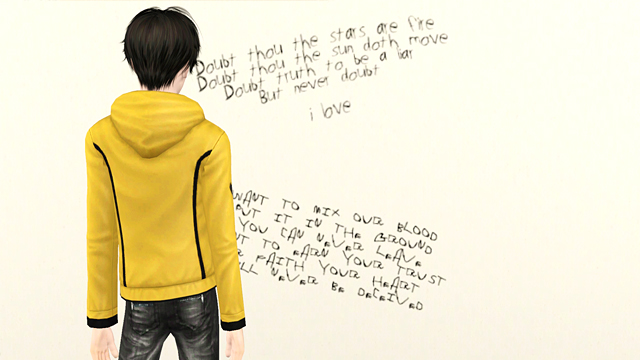 Doubt thou the stars are fire
Doubt thou the sun doth move
Doubt truth to be a liar
But never doubt
i love
WANT TO MIX OUR BLOOD
IT IN THE GROUND
YOU CAN NEVER LEAVE
TO EARN YOUR TRUST
FAITH YOUR HEART
NEVER BE DECEIVED